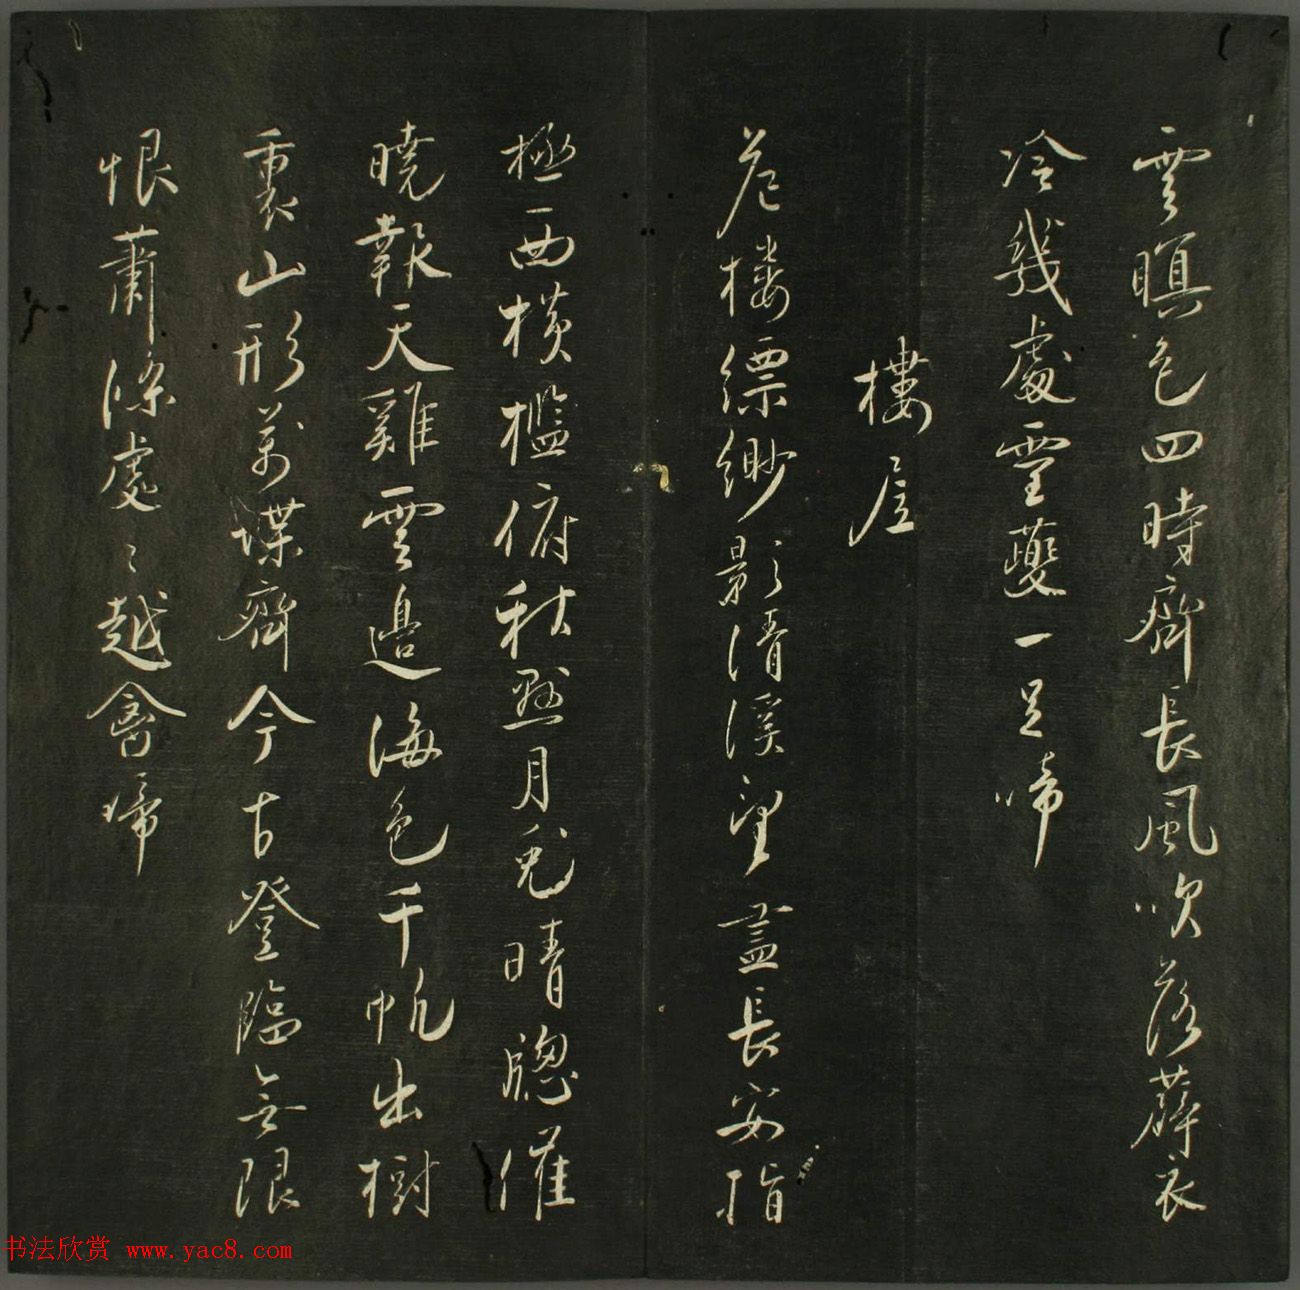 雲暝色四時齊長風吹落薜衣
冷幾處靈夔一足啼
樓居
危樓縹緲影清溪望盡長安指
極西横檻俯秋懸月兎晴牕催
曉報天雞雲邊海色千帆出樹
裏山形萬堞齊今古登臨無限
恨蕭條處〻越禽啼
书法欣赏 www.yac8.com